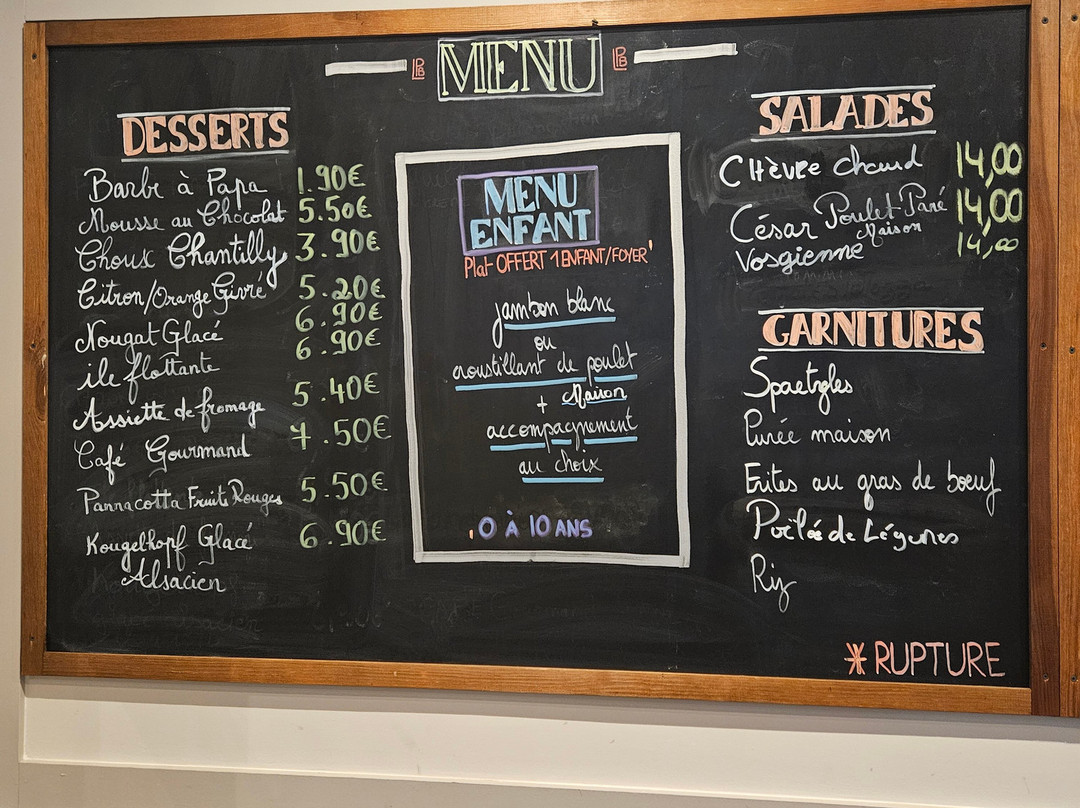 LPB MENU LPB
DESSERTS
Barbe à Papa 1.90€
Mousse au Chocolat 5.50€
Choux Chantilly 3.90€
Citron/Orange Givré 5.20€
Nougat Glacé 6.90€
ile flottante 6.90€
Assiette de fromage 5.40€
Café Gourmand 7.50€
Pannacotta Fruits Rouges 5.50€
Kougelhopf Glacé 6.90€
Alsacien
MENU
ENFANT
Plat OFFERT 1 ENFANT/FOYER
jambon blanc
ou
croustillant de poulet
+ Maison
accompagnement
au choix
0 À 10 ANS
SALADES
CHÈVRE chaud 14,00
César Poulet Pané 14,00
Maison
Vosgienne 14,00
GARNITURES
Spaetzles
Purée maison
Frites au gras de boeuf
Poëlée de Légumes
Riz
* RUPTURE